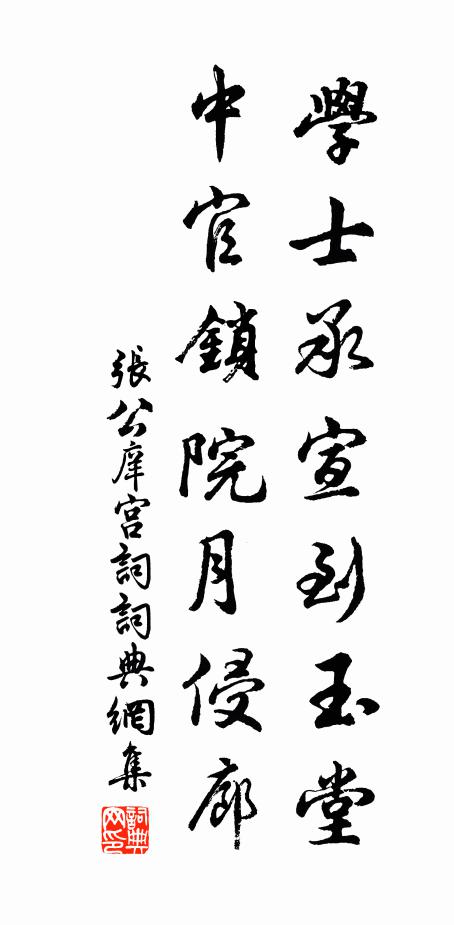 學士承宣到玉堂
中官鎖院月侵廊
張公庠宮詞詞典網集
詞典网印